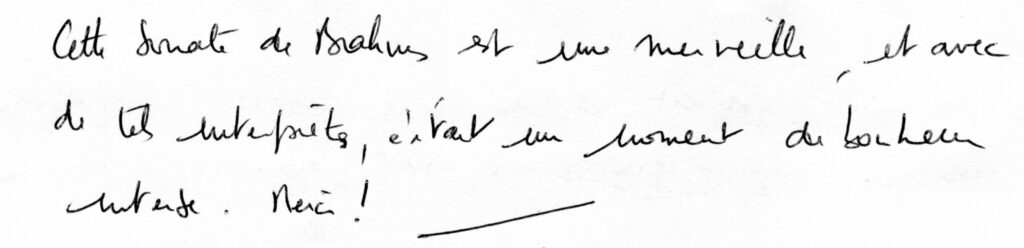 Cette Sonate de Brahms est une merveille, et avec
de tels interprètes, c'était un moment de bonheur
intense. Merci !